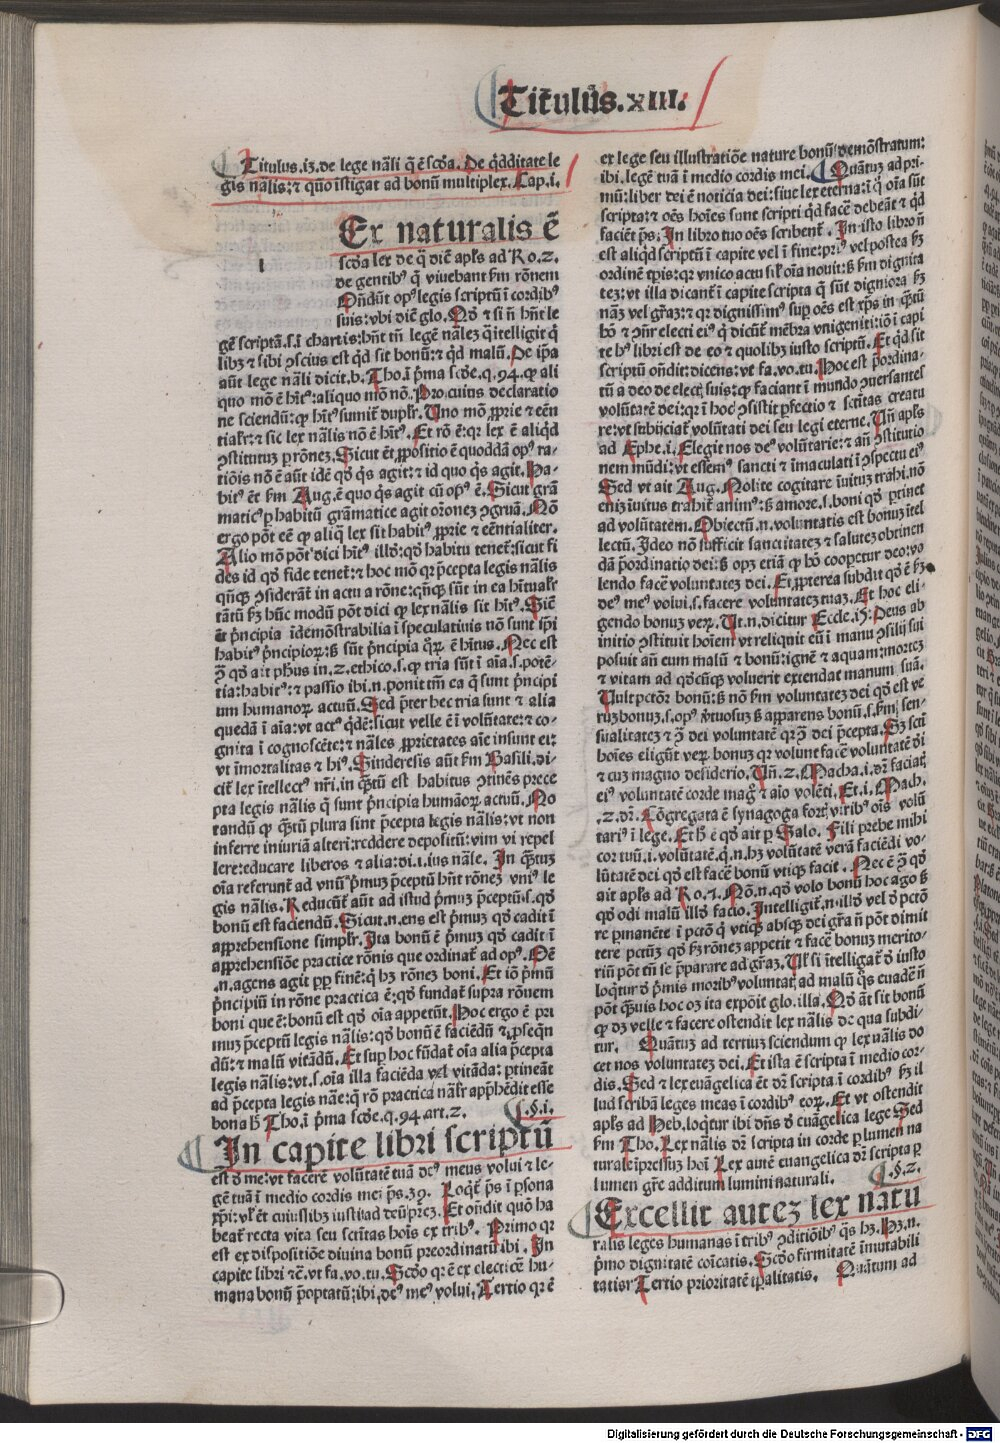 Titulus.XIII.
Titulus.i3.de lege nãli q̃ ẽ scđa. De q̃dditate le
gis nãlis:⁊ quõ ĩstigat ad bonũ multiplex. Cap.i.
Ex naturalis ẽ
scđa lex de q̃ dic̃ apl̃s ad Ro.2.
de gentibꝰ q̃ viuebant fm rõnem
Oñdũt opꝰ legis scriptũ ĩ cordibꝰ
suis:vbi dic̃ glo. Qđ ⁊ si ñ hñt le
gẽ scriptã.s.ĩ chartis:hñt tñ legẽ nãlez q̃ ĩtelligit q̃
libꝫ ⁊ sibi ꝯscius est qđ sit bonũ:⁊ qđ malũ. De ip̃a
aũt lege nãli dicit.b. Tho.ĩ p̃ma scđe.q.94.ꝙ ali
quo mõ ẽ hĩtꝰ:aliquo mõ nõ. Pro cuius declaratio
ne sciendũ:ꝙ hĩtꝰ sumit̃ dupl̃r. Uno mõ ꝓprie ⁊ eẽn
tial̃r:⁊ sic lex nãlis nõ ẽ hĩtꝰ. Et rõ ẽ:qꝛ lex ẽ aliqđ
ꝯstitutuꝫ ꝑ rõnez. Sicut ẽt ꝓpositio ẽ quoddã opꝰ ra-
tiõis nõ ẽ aũt idẽ qđ q̃s agit:⁊ id quo q̃s agit. Ha-
bitꝰ ẽt fm Aug.ẽ quo q̃s agit cũ opꝰ ẽ. Sicut grã
maticꝰ ꝑ habitũ grãmatice agit oꝛonez ꝯgruã. Nõ
ergo põt eẽ ꝙ aliq̃ lex sit habitꝰ ꝓprie ⁊ eẽntialiter.
Alio mõ põt dici hĩtꝰ illđ:qđ habitu tenet̃:sicut fi
des id qđ fide tenet̃:⁊ hoc mõ qꝛ p̃cepta legis nãlis
qñqꝫ ꝯsiderãt̃ in actu a rõne:qñqꝫ sũt in ea hĩtual̃r
tãtũ fꝫ hũc modũ põt dici ꝙ lex nãlis sit hĩtꝰ. Sic̃
⁊ p̃ncipia ĩdemõstrabilia ĩ speculatiuis nõ sunt ip̃i
habitꝰ p̃ncipioꝝ:ß sũt p̃ncipia q̃ꝝ ẽ hĩtus. Nec est
ꝯ̃ qđ ait ph̃us in.2.ethico.s.ꝙ tria sũt ĩ aĩa.s.potẽ-
tia:habitꝰ:⁊ passio ibi.n.ponit tm̃ ea q̃ sunt p̃ncipi
um humanoꝝ actuũ. Sed p̃ter hec tria sunt ⁊ alia
quedã ĩ aĩa:vt actꝰ q̃dẽ:sicut velle ẽ ĩ volũtate:⁊ co-
gnita ĩ cognoscẽte:⁊ nãles ꝓprietates aĩe insunt ei:
vt ĩmortalitas ⁊ hiꝰ. Sinderesis aũt fm Basili.di-
cit̃ lex ĩtellectꝰ nr̃i.in q̃ꝫtũ est habitus ꝯtinẽs prece
pta legis nãlis q̃ sunt p̃ncipia humãoꝝ actuũ. No
tandũ ꝙ q̃ꝫtũ plura sint p̃cepta legis nãlis:vt non
inferre iniuriã alteri:reddere depositũ:vim vi repel
lere:educare liberos ⁊ alia:di.i.ius nãle. In q̃ꝫtuꝫ
oĩa referunt̃ ad vnũ p̃muꝫ p̃ceptũ hñt rõnez vniꝰ le
gis nãlis. Reducũt̃ aũt ad istud p̃muꝫ p̃ceptũ.s.qđ
bonũ est faciendũ. Sicut.n.ens est p̃muꝫ qđ cadit ĩ
apprehensione simpl̃r. Ita bonũ ẽ p̃muꝫ qđ cadit ĩ
apprehensiõe practice rõnis que ordinat̃ ad opꝰ. Oẽ
.n.agens agit ꝓp finẽ:q̃ hꝫ rõnez boni. Et iõ p̃mũ
p̃ncipiũ in rõne practica ẽ:qđ fundat̃ supra rõnem
boni que ẽ:bonũ est qđ oĩa appetũt. Hoc ergo ẽ pri
muꝫ p̃ceptũ legis nãlis:qđ bonũ ẽ faciẽdũ ⁊ ꝓseqñ
dũ:⁊ malũ vitãdũ. Et suꝑ hoc fũdat̃ oĩa alia p̃cepta
legis nãlis:vt.s.oĩa illa faciẽda vel vitãda:ptineãt
ad p̃cepta legis nãe:q̃ rõ practica nãl̃r app̃hẽdit esse
bona ß Tho.ĩ p̃ma scđe.q.94.art.2. .§.i.
In capite libri scriptũ
est đ me:vt facerẽ volũtatẽ tuã deꝰ meus volui ⁊ le-
gẽ tuã ĩ medio cordis mei ps.39. Loqt̃ ps̃ ĩ psona
xp̃i:vl̃ ẽt cuiuslibꝫ iusti ad deũ p̃rez. Et oñdit quõ ha
beat̃ recta vita seu scr̃itas hoĩs ex tribꝰ. Primo qꝛ
est ex dispositiõe diuina bonũ preordinatiũ ibi. In
capite libri ⁊c̃.vt fa.vo.tu. Scđo qꝛ ẽ ex electiõe hu-
mana bonũ p̃optatũ:ibi.deꝰ meꝰ volui. Tertio qꝛ ẽ
ex lege seu illustratiõe nature bonũ demõstratum:
ibi.legẽ tuã ĩ medio cordis mei. Quãtuꝫ ad pri-
mũ:liber dei ẽ noticia dei:siue lex eterna:ĩ q̃ oĩa sũt
scripta:⁊ oẽs hoĩes sunt scripti qđ facẽ debeãt ⁊ qđ
faciẽt ps̃. In libro tuo oẽs scribent̃. In isto libro ñ
est aliqđ scriptũ ĩ capite vel ĩ fine:priꝰ vel postea fꝫ
ordinẽ tp̃is:qꝛ vnico actu sil̃ oĩa nouit:ß fm dignita
tez:vt illa dicant̃ ĩ capite scripta q̃ sũt digniora fꝫ
nãꝫ vel gr̃az:⁊ qꝛ dignissimꝰ suꝑ oẽs est xp̃s in q̃ꝫtũ
hõ ⁊ ꝯñr electi eiꝰ q̃ dicũt̃ mẽbra vnigeniti:iõ ĩ capi
te hꝰ libri est de eo ⁊ quolibꝫ iusto scriptũ. Et qđ sit
scriptũ oñdit:dicens:vt fa.vo.tu. Hoc est p̃ordina-
tũ a deo de electꝭ suis:ꝙ faciant ĩ mundo ꝯuersantes
volũtatẽ dei:qꝛ ĩ hoc ꝯsistit ꝑfectio ⁊ scr̃itas creatu
re:vt subijciat̃ volũtati dei seu legi eterne. Uñ apl̃s
ad Ephe.i. Elegit nos deꝰ volũtarie:⁊ añ ꝯstitutio
nem mũdi:vt essemꝰ sancti ⁊ ĩmaculati ĩ ꝯspectu eiꝰ
Sed vt ait Aug. Nolite cogitare ĩuitus trahi.nõ
eniꝫ ĩuitus trahit̃ animꝰ:ß amore.s.boni qđ ꝑtinet
ad volũtatem. Obiectũ.n.voluntatis est bonuꝫ ĩtel
lectũ. Ideo nõ sufficit sanctitatez ⁊ salutez obtinen
dã p̃ordinatio dei:ß opꝫ etiã ꝙ hõ cooperur deo:vo
lendo facẽ voluntatez dei. Et ꝓpterea subdit qđ ẽ fꝫ
deꝰ meꝰ volui.s.facere voluntatez tuaz. Et hoc eli-
gendo bonuꝫ veꝝ. Ut.n.dicitur Eccle.i5. Deus ab
initio ꝯstituit hoĩem vt reliquit eũ ĩ manu ꝯsilij sui
posuit añ eum malũ ⁊ bonũ:ignẽ ⁊ aquam:mortez
⁊ vitam ad qđcũqꝫ voluerit extendat manum suã.
Uult pctõr bonũ:ß nõ fm voluntatez dei qđ est ve
ruꝫ bonuꝫ.s.opꝰ v̓tuosuꝫ ß apparens bonũ.s.fm sen-
sualitatez ⁊ ꝯ̃ dei voluntatẽ qꝛ ꝯ̃ dei p̃cepta. Sꝫ scti
hoĩes eligũt veꝝ bonuꝫ qꝛ volunt facẽ voluntatẽ dei
⁊ cuꝫ magno desiderio. Uñ.2. Macha.i.dr̃ faciat
eiꝰ voluntatẽ corde magꝰ ⁊ aĩo volẽti. Et.i. Mach.
.2.dr̃. Cõgregata ẽ synagoga fortꝭ virĩbꝰ oĩs volũ
tariꝰ ĩ lege. Et ß ẽ qđ ait ꝑ Salo. Fili prebe mihi
cor tuũ.i.volũtatẽ.q̃.n.hꝫ volũtatẽ verã faciẽdi vo-
lũtatẽ dei qđ est facẽ bonũ vtiqꝫ facit. Nec ẽ ꝯ̃ qđ
ait apl̃s ad Ro.7. Nõ.n.qđ volo bonũ hoc ago ß
qđ odi malũ illđ facio. Intelligit̃.n.illđ vel đ pctõ
re ꝑmanẽte ĩ pctõ q̃ vtiqꝫ absqꝫ dei gr̃a ñ põt dimit
tere pctũꝫ qđ fꝫ rõnez appetit ⁊ facẽ bonuꝫ merito-
riũ põt tñ se p̃parare ad gr̃az. Ul̃ si ĩtelligat̃ đ iusto
loqt̃ur đ p̃mis moribꝰ voluntatꝭ ad malũ q̃s euadẽ ñ
põt q̃uis hoc oꝫ ita expõit glo.illa. Qđ aũt sit bonũ
ꝙ dꝫ velle ⁊ facere ostendit lex nãlis de qua subdi-
tur. Quãtuꝫ ad tertiuꝫ sciendum ꝙ lex nãlis do
cet nos voluntatez dei. Et ista ẽ scripta ĩ medio cor-
dis. Sed ⁊ lex euãgelica ẽt dr̃ scripta ĩ cordibꝰ fꝫ il
lud scribã leges meas ĩ cordibꝰ eoꝝ. Et vt ostendit
apl̃s ad Heb.loqt̃ur ibi dñs đ euãgelica lege Sed
fm Tho. Lex nãlis dr̃ scripta in corde ꝑ lumen na
turale ĩpressuꝫ hoĩ Lex autẽ euangelica dr̃ scripta ꝑ
lumen gr̃e additum lumini naturali. .§.2.
Excellit auteꝫ lex natu
ralis leges humanas ĩ tribꝰ ꝯditiõibꝰ q̃s hꝫ. Hꝫ.n.
p̃mo dignitatẽ colcatis. Scđo firmitatẽ ĩmutabili
tatis: Tertio prioritatẽ ip̃alitatis. Quãtum ad
Digitalisierung gefördert durch die Deutsche Forschungsgemeinschaft - DFG